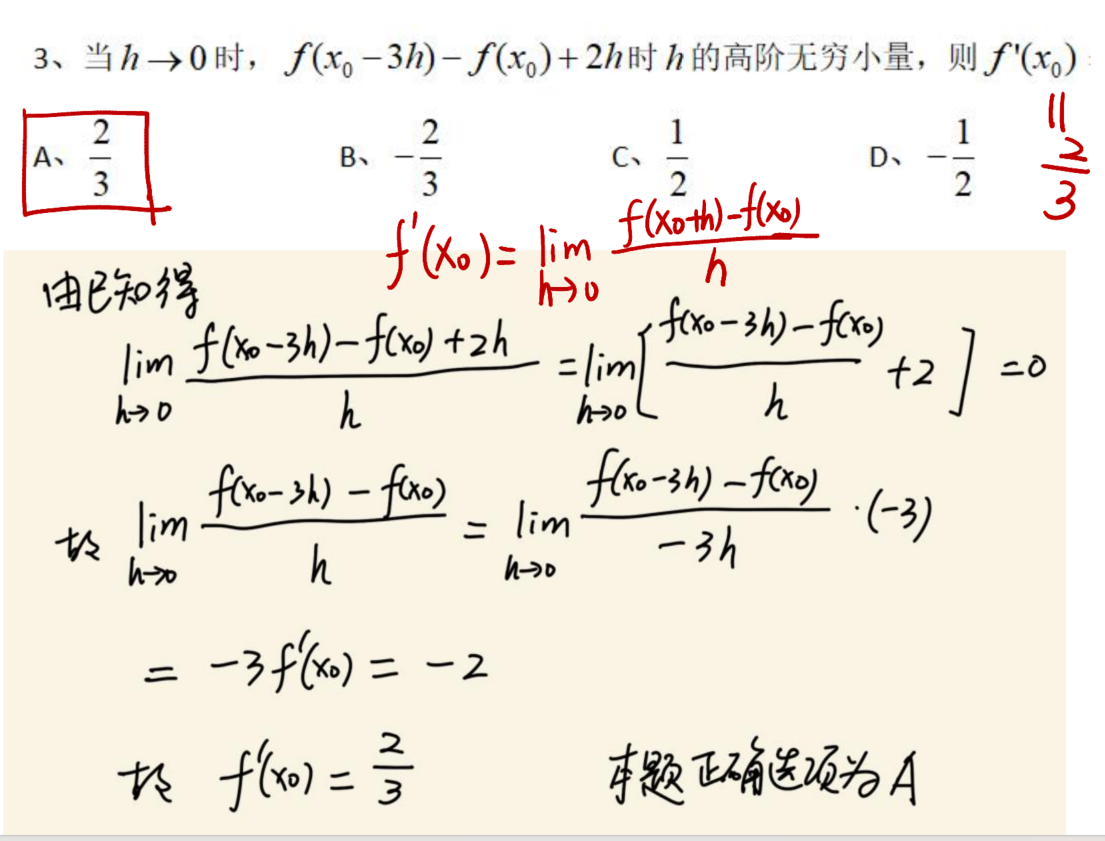 3、当 h→0 时， f(x₀−3h)−f(x₀)+2h时 h 的高阶无穷小量，则 f'(x₀)
A、 2/3 B、 −2/3 C、 1/2 D、 −1/2
= 2/3
f'(x₀)= lim h→0 (f(x₀+h)−f(x₀))/h
由已知得
lim h→0 (f(x₀−3h)−f(x₀)+2h)/h = lim h→0 [(f(x₀−3h)−f(x₀))/h +2] =0
故 lim h→0 (f(x₀−3h)−f(x₀))/h = lim h→0 (f(x₀−3h)−f(x₀))/(−3h) ·(−3)
= −3f'(x₀) = −2
故 f'(x₀) = 2/3 本题正确选项为A